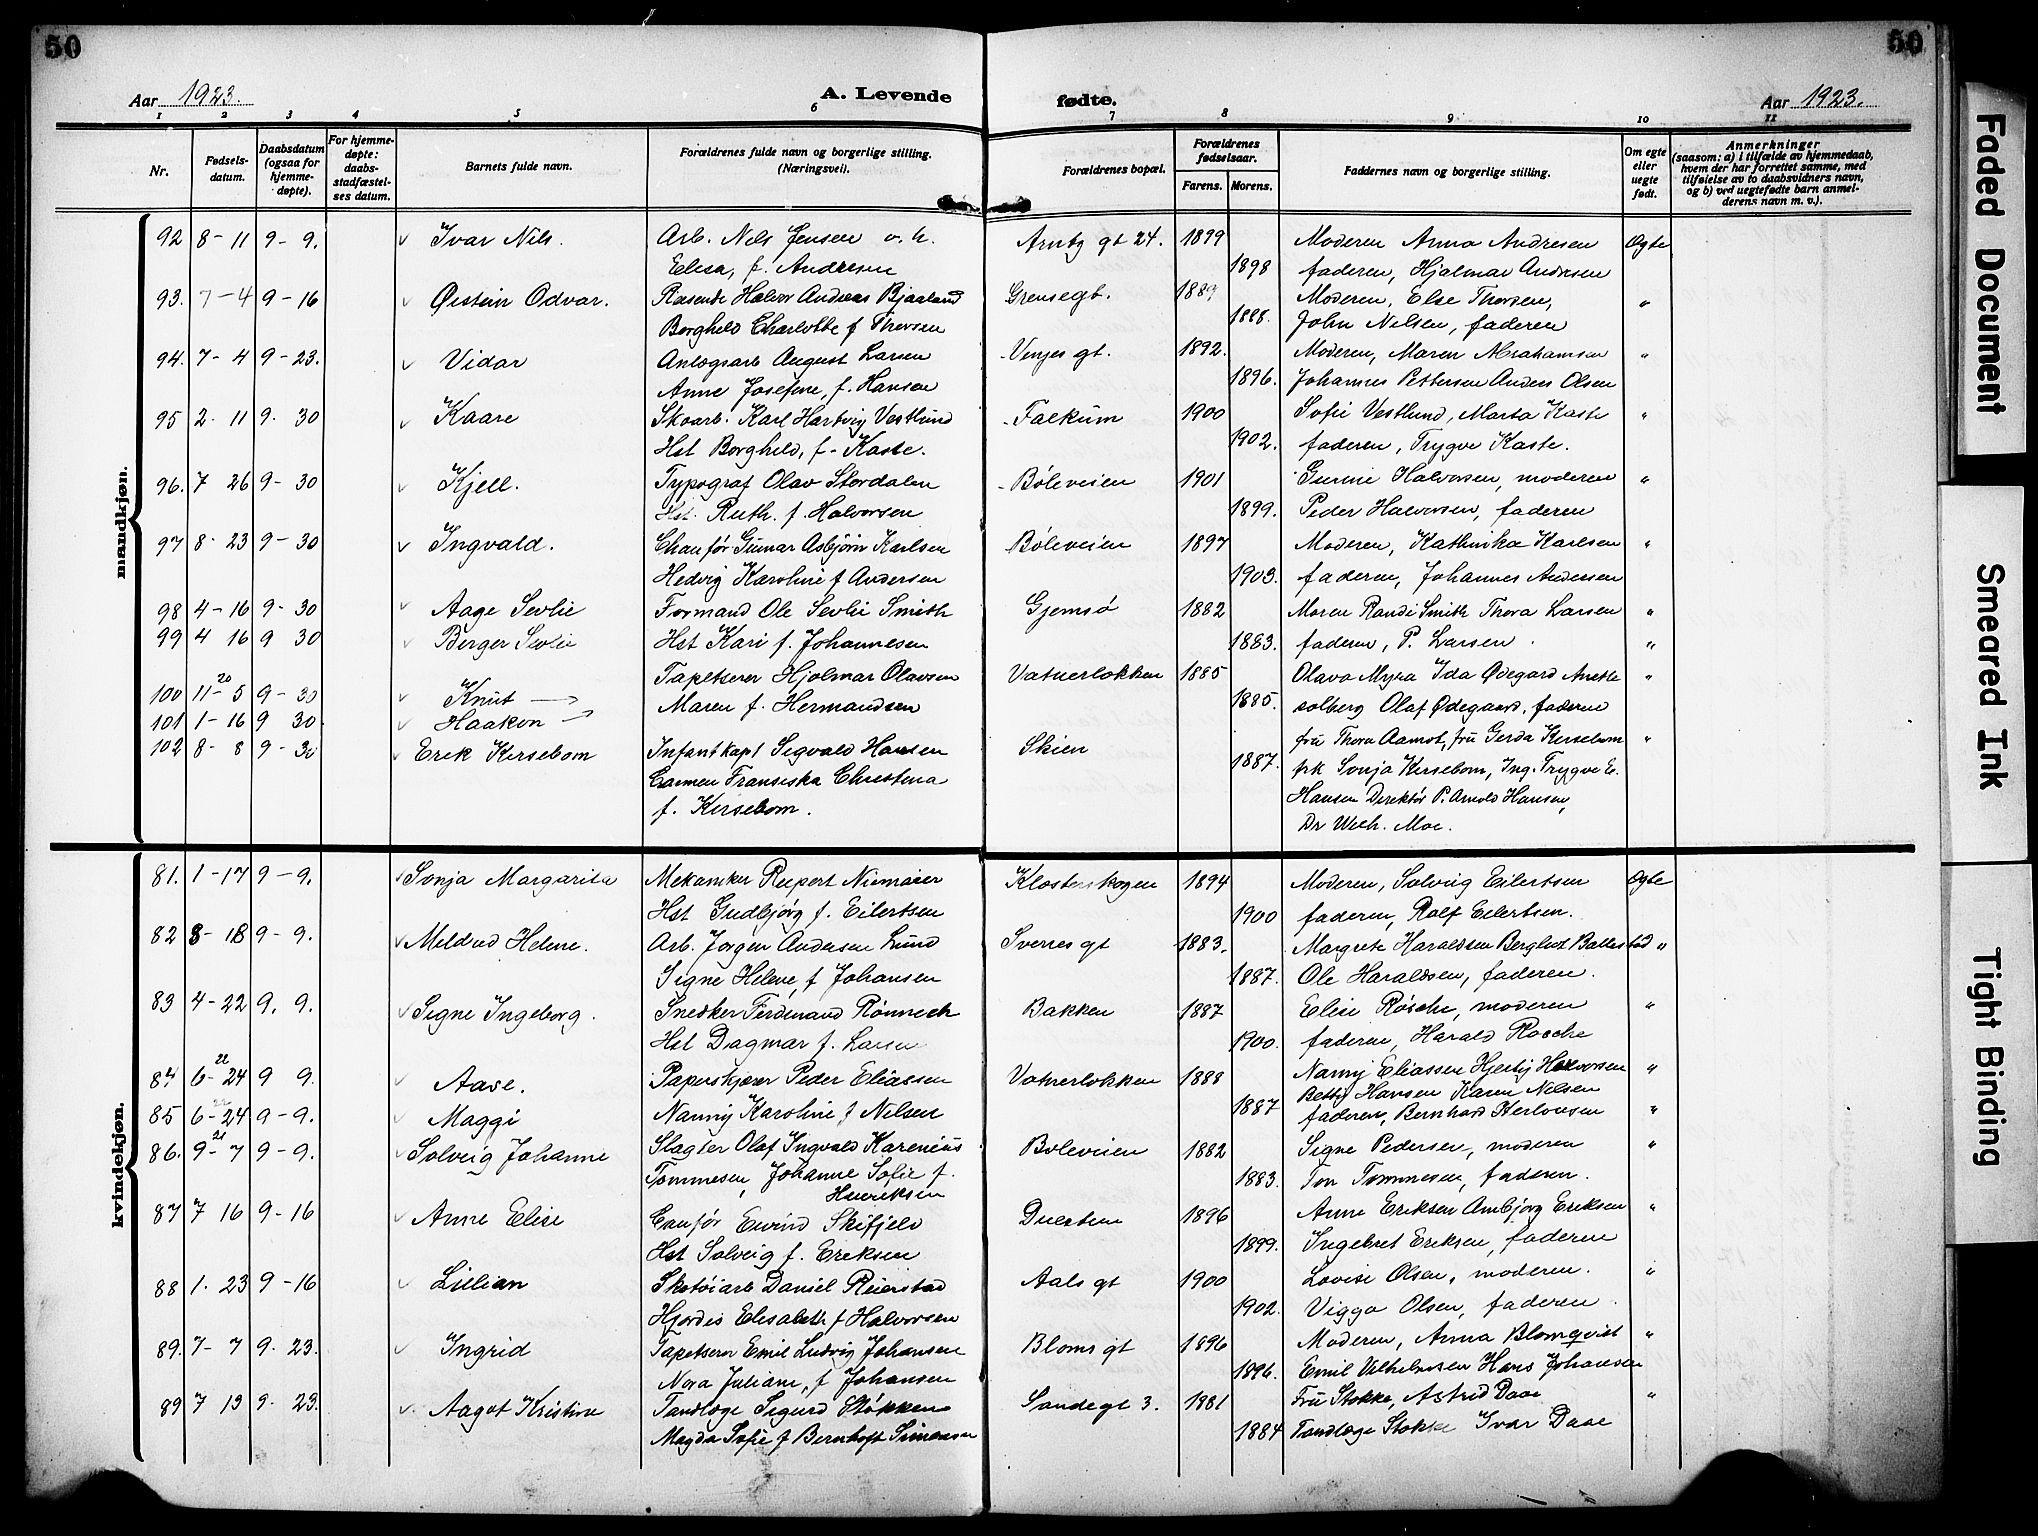 50
50
Aar 1923.
A. Levende
fødte.
Aar 1923.
1 2 3 4 5 6 7 8 9 10 11
Nr.
Fødsels-
datum.
Daabsdatum
(ogsaa for
hjemme-
døpte).
For hjemme-
døpte:
daabs-
stadfæstel-
ses datum.
Barnets fulde navn.
Forældrenes fulde navn og borgerlige stilling.
(Næringsvei).
Forældrenes bopæl.
Forældrenes
fødselsaar.
Farens. Morens.
Faddernes navn og borgerlige stilling.
Om egte
eller
uegte
født.
Anmerkninger
(saasom: a) i tilfælde av hjemmedaab,
hvem der har forrettet samme, med
tilføielse av to daabsvidners navn,
og b) ved uegtefødte barn anmel-
derens navn m. v.).
mandkjøn.
92 8-11 9-9. Ivar Nils. Arb. Nils Jensen o. h. Arntz gt 24. 1899 Moderen Anna Andresen Egte
Elisa, f. Andresen 1898 faderen, Hjalmar Andresen
93. 7-4 9-16 Øistein Odvar. Reisende Halvor Andreas Bjaaland Grensegt. 1889 Moderen, Else Thorsen, "
Borghild Charlotte f Thorsen 1888. John Nilsen, faderen
94. 7-4 9-23. Vidar Anlægsarb August Larsen Venjes gt. 1892. Moderen, Maren Abrahamsen "
Anne Josefine, f. Hansen 1896. Johannes Pettersen Anders Olsen
95 2-11 9-30 Kaare Skoarb. Karl Hartvig Vestlund Falkum 1900 Sofie Vestlund, Marta Kaste "
Hst Borghild, f. Kaste. 1902. faderen, Trygve Kaste.
96. 7 26 9-30 Kjell. Typograf Olav Stordalen Bøleveien 1901 Gunnie Halvorsen, moderen "
Hst. Ruth. f. Halvorsen 1899. Peder Halvorsen, faderen
97 8-23 9-30 Ingvald. Chauför Gunnar Asbjørn Karlsen Bøleveien 1897 Moderen, Kathinka Karlsen "
Hedvig Karoline f Andersen 1903. faderen, Johannes Andersen
98 4-16 9-30 Aage Sevlie Formand Ole Sevlie Smith Gjemsø 1882 Moren Randi Smith Thora Larsen "
99 4 16 9 30 Berger Sevlie Hst Kari f. Johannesen 1883. faderen, P. Larsen. "
Tapetserer Hjalmar Olavsen Vatnerlökken 1885 Olava Myra Ida Ødegard Anette "
100 11-20 5 9-30 Knut Maren f. Hermandsen 1885. solberg Olaf Ødegaard. faderen
101 1-16 9 30. Haakon
102 8-8 9-30 Erik Kirsebom Infantkapt Sigvald Hansen Skien fru Thora Aamot, fru Gerda Kirsebom "
Carmen Fransiska Christina 1887. frk Sonja Kirsebom, Ing. Trygve E.
f. Kirsebom. Hansen Direktør P. Arnold Hansen,
Dr Wilh. Moe.
kvindekjøn.
81. 1-17 9-9. Sonja Margarita Mekaniker Rupert Niemaier Klosterskogen 1894 Moderen, Solveig Eilertsen Egte
Hst Gudbjørg f. Eilertsen 1900 faderen, Rolf Eilertsen.
82 3-18 9-9. Mildred Helene. Arb. Jørgen Andersen Lund Sverres gt 1883. Margrete Haraldsen Bergliot Ballestad "
Signe Helene, f Johansen 1887. Ole Haraldsen, faderen.
83 4-22 9. 9. Signe Ingeborg. Snedker Ferdinand Rønnech Bakken 1887 Elise Røsche, moderen "
Hst Dagmar f. Larsen 1900. faderen, Harald Rosche
84 6-22 24 9 9. Aase. Papirskjærer Peder Eliassen Vatnerlokken 1888 Nanny Eliassen Hjertij Halvorsen "
Betty Hansen Karen Nilsen
85 6-24 9-9. Maggi Nanny Karoline f Nilsen 1887 faderen, Bernhard Herlovsen "
86. 9-21 7 9-9. Solveig Johanne Slagter Olaf Ingvald Karenius Boleveien 1882 Signe Pedersen, moderen "
Tommesen, Johanne Sofie f. 1883. Tor Tommesen, faderen.
Henriksen
87 7 16 9-16 Anne Elise Caufør Eivind Skifjeld Duestien 1896 Anne Eriksen Ambjørg Eriksen "
Hst Solveig f. Eriksen 1899. Ingebret Eriksen, faderen
88 1. 23 9-16 Lillian Skotøiarb Daniel Reierstad Aals gt 1900 Lovise Olsen, moderen. "
Hjordis Elisabeth f Halvorsen 1902. Viggo Olsen, faderen.
89. 7-7 9. 23. Ingrid Tapetserer Emil Ludvig Johansen Bloms gt 1896 Moderen, Anna Blomqvist "
Nora Juliane, f Johansen 1896. Emil Vilhelmsen Hans Johansen
89 7 13 9. 23. Aagot Kristine Tandlæge Sigurd Støkken Sandegt 3. 1881 Fru Stokke, Astrid Daae "
Magda Sofie f Bernhoft Simonsen 1884 Tandlæge Stokke Ivar Daae
Faded Document
Smeared Ink
Tight Binding